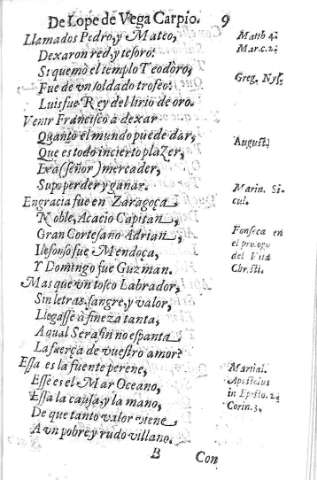 De Lope de Vega Carpio. 9
Llamados Pedro, y Mateo,
Dexaron red, y tesoro:
Si quemò el templo Teodoro,
Fue de vn soldado trofeo:
Luis fue Rey del lirio de oro.
Venir Francisco à dexar
Quanto el mundo puede dar,
Que es todo incierto plazer,
Era (señor) mercader,
Supo perder y ganar.
En gracia fue en Zaragoça
Noble, Acacio Capitan,
Gran Cortesano Adrian,
Ilefonso fue Mendoça,
Y Domingo fue Guzman.
Mas que vn tosco Labrador,
Sin letras, sangre, y valor,
Llegasse à fineza tanta,
A qual Serafin no espanta
La fuerça de vuestro amor?
Essa es la fuente perene,
Esse es el Mar Oceano,
Essa la causa, y la mano,
De que tanto valor viene
A vn pobre y rudo villano.
B Con
Math. 4.
Marc. 2.
Greg. Nyss.
August.
Marin. Si-
cul.
Fonseca en
el prologo
del Vita
Chrsti.
Marial.
Apostolus
in Epist. 2.
Corin. 3.